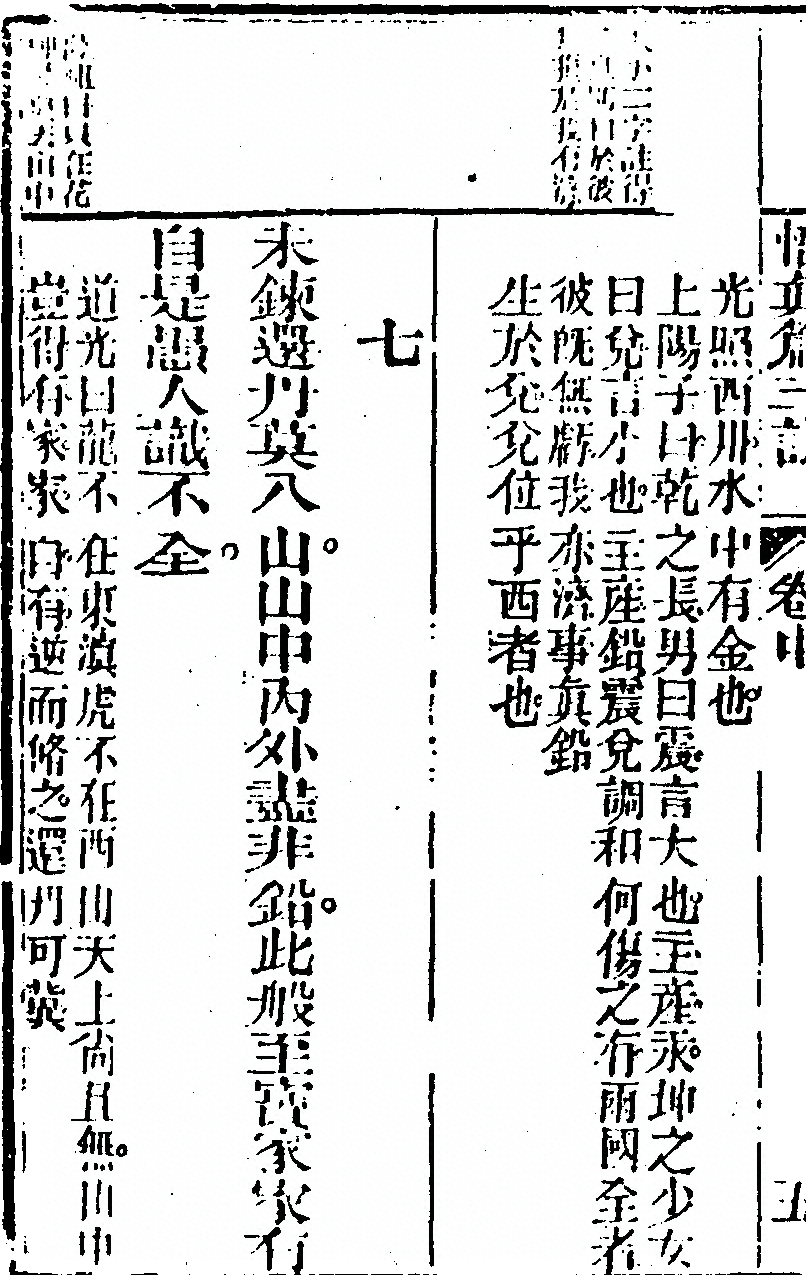 悟真篇三註 卷中
光照西川水中有金也
上陽子曰乾之長男曰震言大也主產汞坤之少女
曰兌言小也主產鉛震兌調和何傷之有兩國全者
彼既無虧我亦濟事真鉛
生於兌兌位乎西者也
七
未鍊還丹莫入山山中內外盡非鉛此般至寶家家有
自是愚人識不全
道光曰龍不在東溟虎不在西山天上尚且無山中
豈得有家家自有逆而脩之還丹可冀
大小二字註得
曰於彼
於我有濟
在花
山中